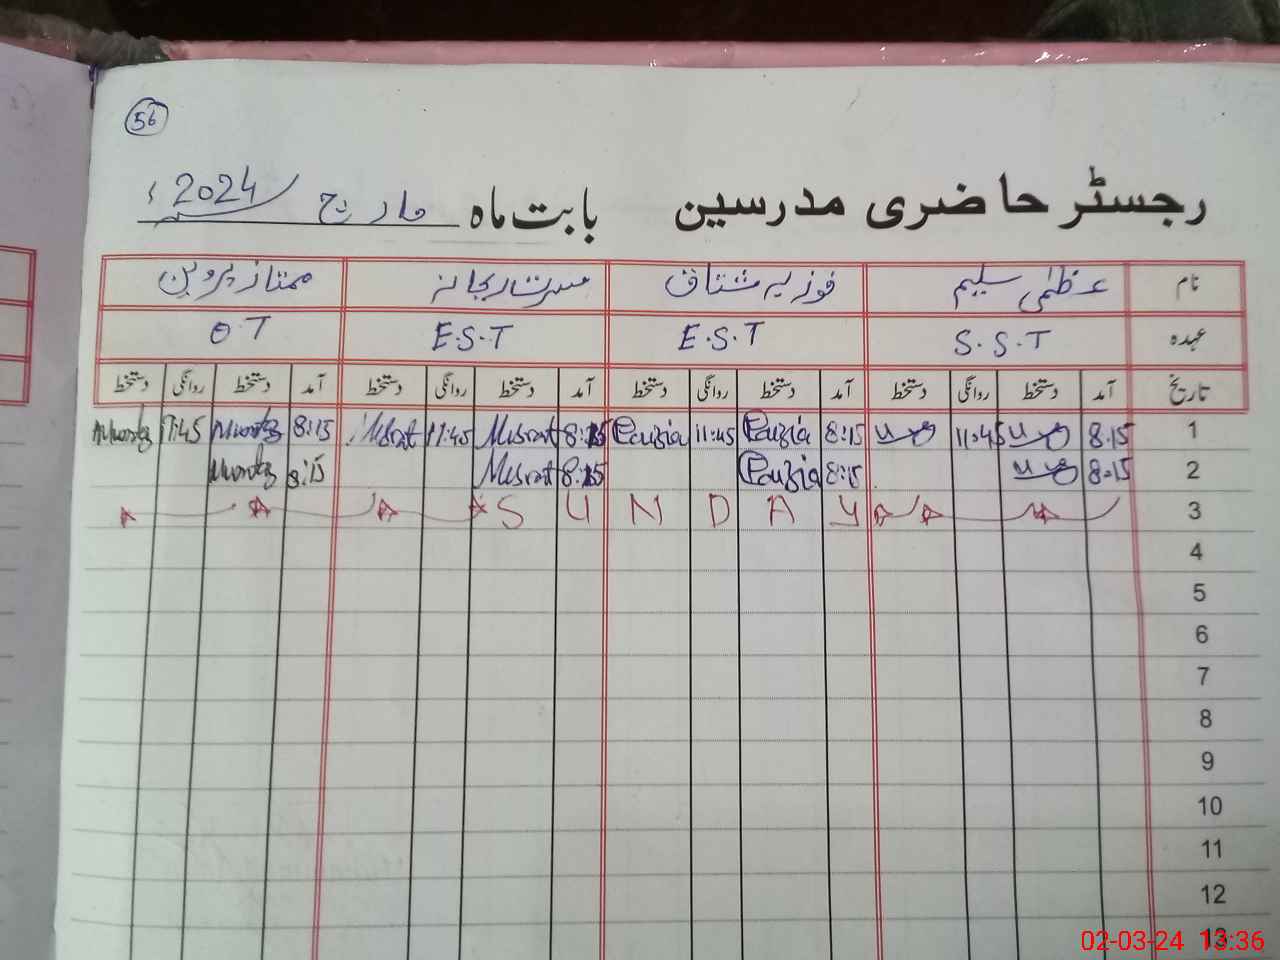 56
رجسٹر حاضری مدرسین بابت ماہ مارچ 2024ء
نام عظمٰی سلیم فوزیہ مشتاق مسرت ریحانہ ممتاز پروین
عہدہ S.S.T E.S.T E.S.T O.T
تاریخ آمد دستخط روانگی دستخط آمد دستخط روانگی دستخط آمد دستخط روانگی دستخط آمد دستخط روانگی دستخط
1 8:15 11:45 8:15 Fouzia 11:45 Fouzia 8:15 Musrat 11:45 Musrat 8:15 Mumtaz 11:45 Mumtaz
2 8:15 8:15 Fouzia 8:15 Musrat 8:15 Mumtaz
3 SUNDAY
4
5
6
7
8
9
10
11
12
13
02-03-24 13:36